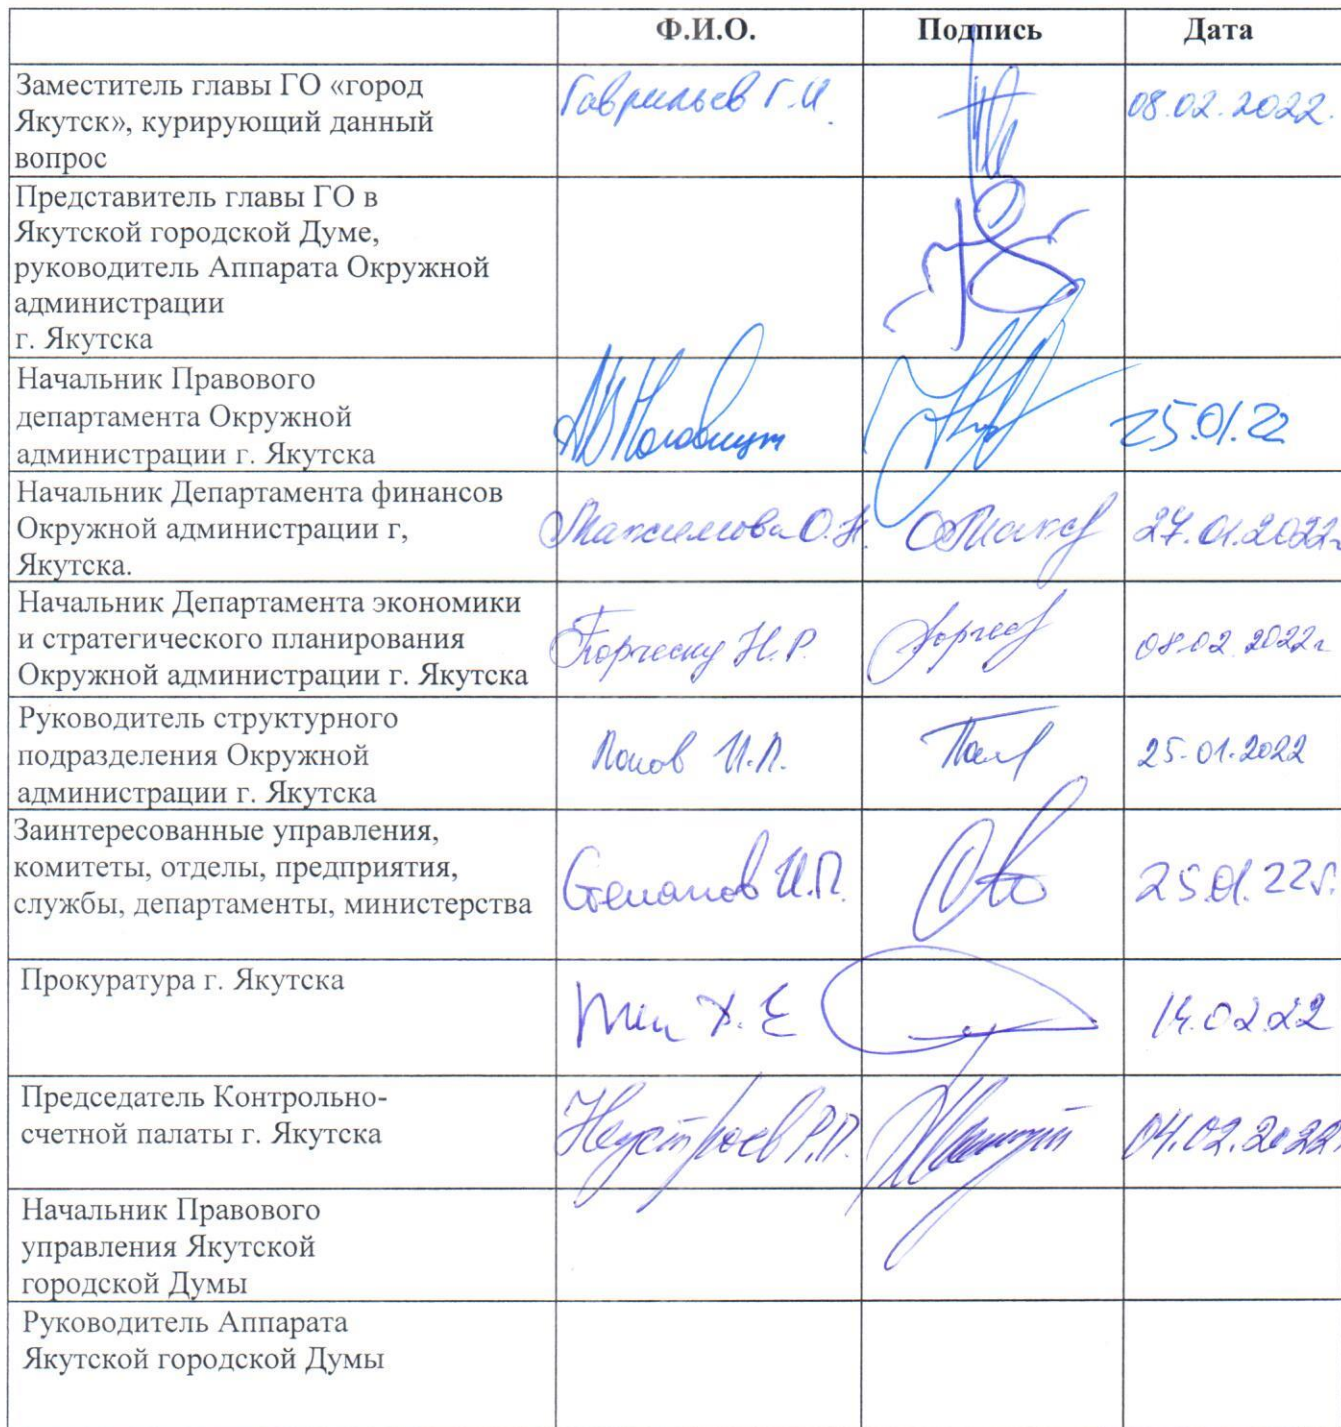 Ф.И.О. Подпись Дата
Заместитель главы ГО «город
Якутск», курирующий данный
вопрос
Гаврильев Г.И. 08.02.2022.
Представитель главы ГО в
Якутской городской Думе,
руководитель Аппарата Окружной
администрации
г. Якутска
Начальник Правового
департамента Окружной
администрации г. Якутска
25.01.22
Начальник Департамента финансов
Окружной администрации г,
Якутска.
Максимова О.Н. 27.01.2022г
Начальник Департамента экономики
и стратегического планирования
Окружной администрации г. Якутска
Н.Р. 08.02.2022г
Руководитель структурного
подразделения Окружной
администрации г. Якутска
Попов И.П. 25.01.2022
Заинтересованные управления,
комитеты, отделы, предприятия,
службы, департаменты, министерства
Степанов И.П. 25.01.22г.
Прокуратура г. Якутска
14.02.22
Председатель Контрольно-
счетной палаты г. Якутска
Неустроев Р.П. 04.02.2022г
Начальник Правового
управления Якутской
городской Думы
Руководитель Аппарата
Якутской городской Думы